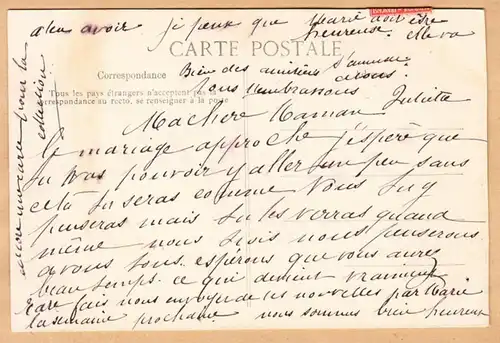 a len avoir je peux que Marie doit être
heureuse elle va
CARTE POSTALE
s'amuser
Correspondance Bien des amitiés
à tous
Tous les pays étrangers n'acceptent pas la
correspondance au recto, se renseigner à la poste
vous embrassons Juliette
Ma chère Maman
le mariage approche j'espère que
tu vas pouvoir y aller un peu sans
cela tu seras comme nous tu y
penseras mais tu les verras quand
même nous ici nous penserons
a vous tous. esperons que vous aures
beau temps. ce qui devient vraiment
rare fais nous envoyer de les nouvelles par Marie
la semaine prochaine nous sommes bien heureux
encore une carte pour la
collection